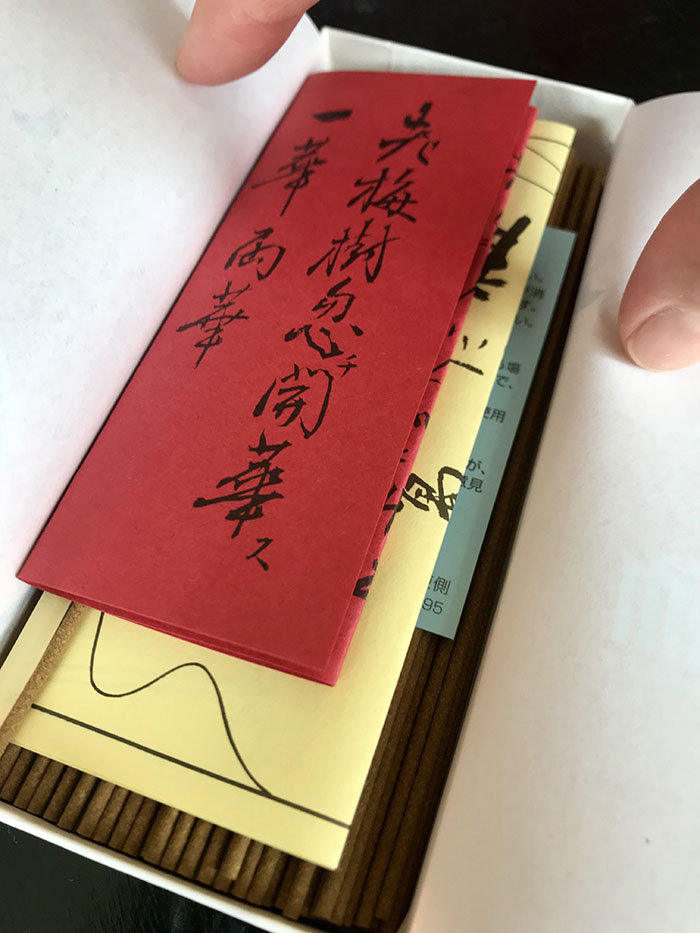 老梅樹忽チ開華ス
一華両華
い。
消
す。
い。
場
で、
使用
が、
見
側
95